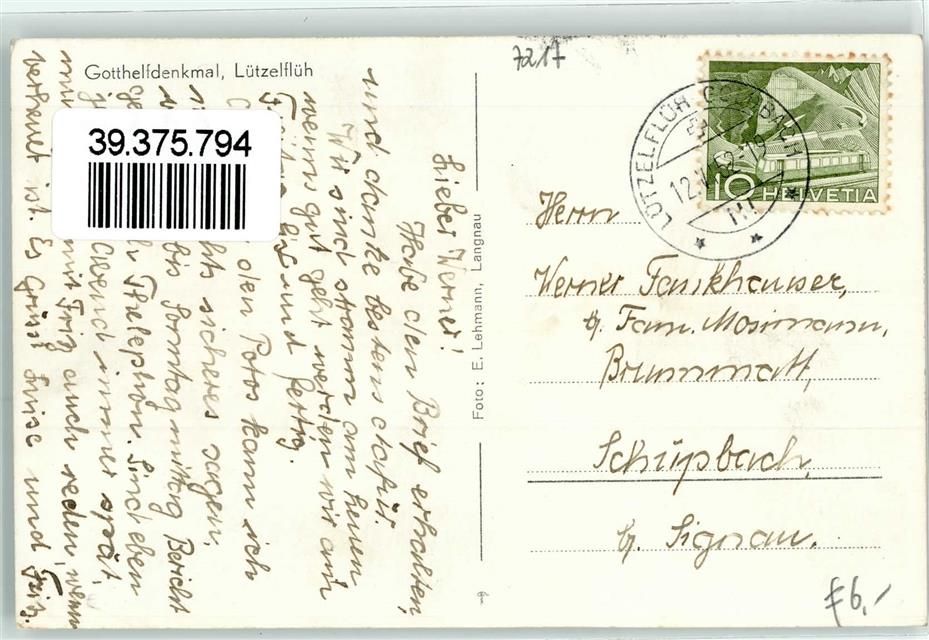 Gotthelfdenkmal, Lützelflüh
39.375.794
7217
Lieber Werner!
Habe den Brief erhalten,
und danke bestens dafür.
Wir sind stramm am heuen
wenns gut geht werden wir am
Freitag Abend fertig.
den Potos kann ich
sicheres sagen,
bis Sonntag mittag Bericht
Thelephon. Sind eben
Abend immer spät,
mit Friz auch reden, wenn
verheuet ist. Es Grüsst Luise und Friz.
Foto: E. Lehmann, Langnau
LÜTZELFLÜH-GOLDBACH
10 HELVETIA
Herrn
Werner Fankhauser,
b/ Fam. Mosimann,
Brunnmatt,
Schüpbach,
b/ Signau.
£6,-